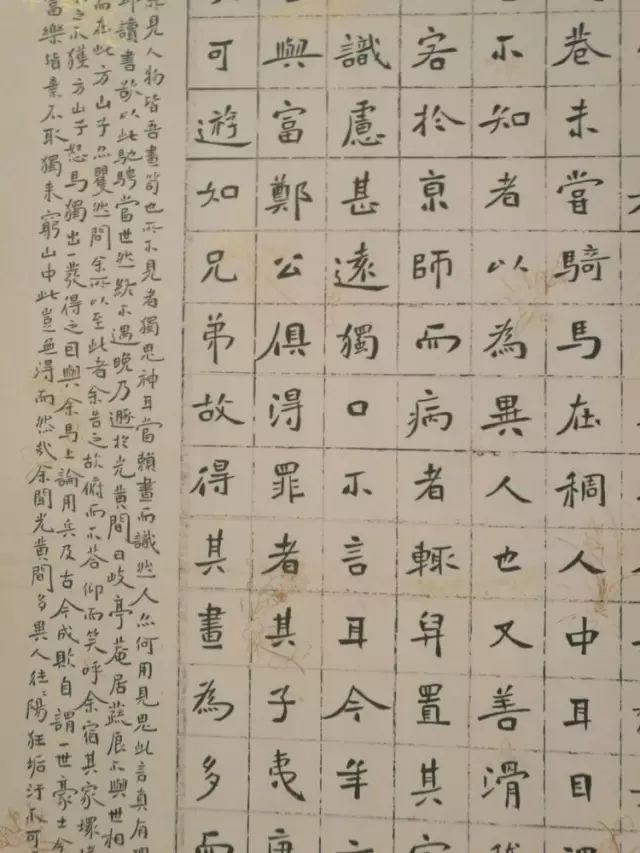 巷未當騎馬在稠人中耳目
不知者以為異人也又善滑
客於京師而病者輒舁置其
識慮甚遠獨口不言耳今年
與富鄭公俱得罪者其子夷
可遊如兄弟故得其畫為多而
見人物皆吾畫笥也所不見者獨思神耳當賴畫而識然人亦何用見思此言真有
即讀書欲以此馳騁當世然終不遇晚乃遯於光黃間曰岐亭菴居蔬食不與世相
而在此方山子亦矍然問余所以至此者余告之故俯而不答仰而笑呼余宿其家環堵
之不獲方山子怒馬獨出一發得之因與余馬上論用兵及古今成敗自謂一世豪士今
富樂皆棄不取獨來窮山中此豈無得而然哉余聞光黃間多異人往〻陽狂垢汙不可